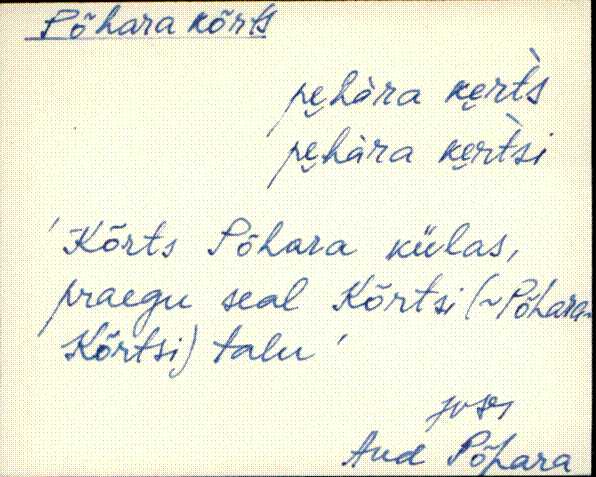 Põhara kõrts
pe̮hàra ke̮rt̀s
pe̮hàra ke̮rt̀si
'Kõrts Põhara külas,
praegu seal Kõrtsi (~Põhara-
Kõrtsi) talu'
Aud Põhara